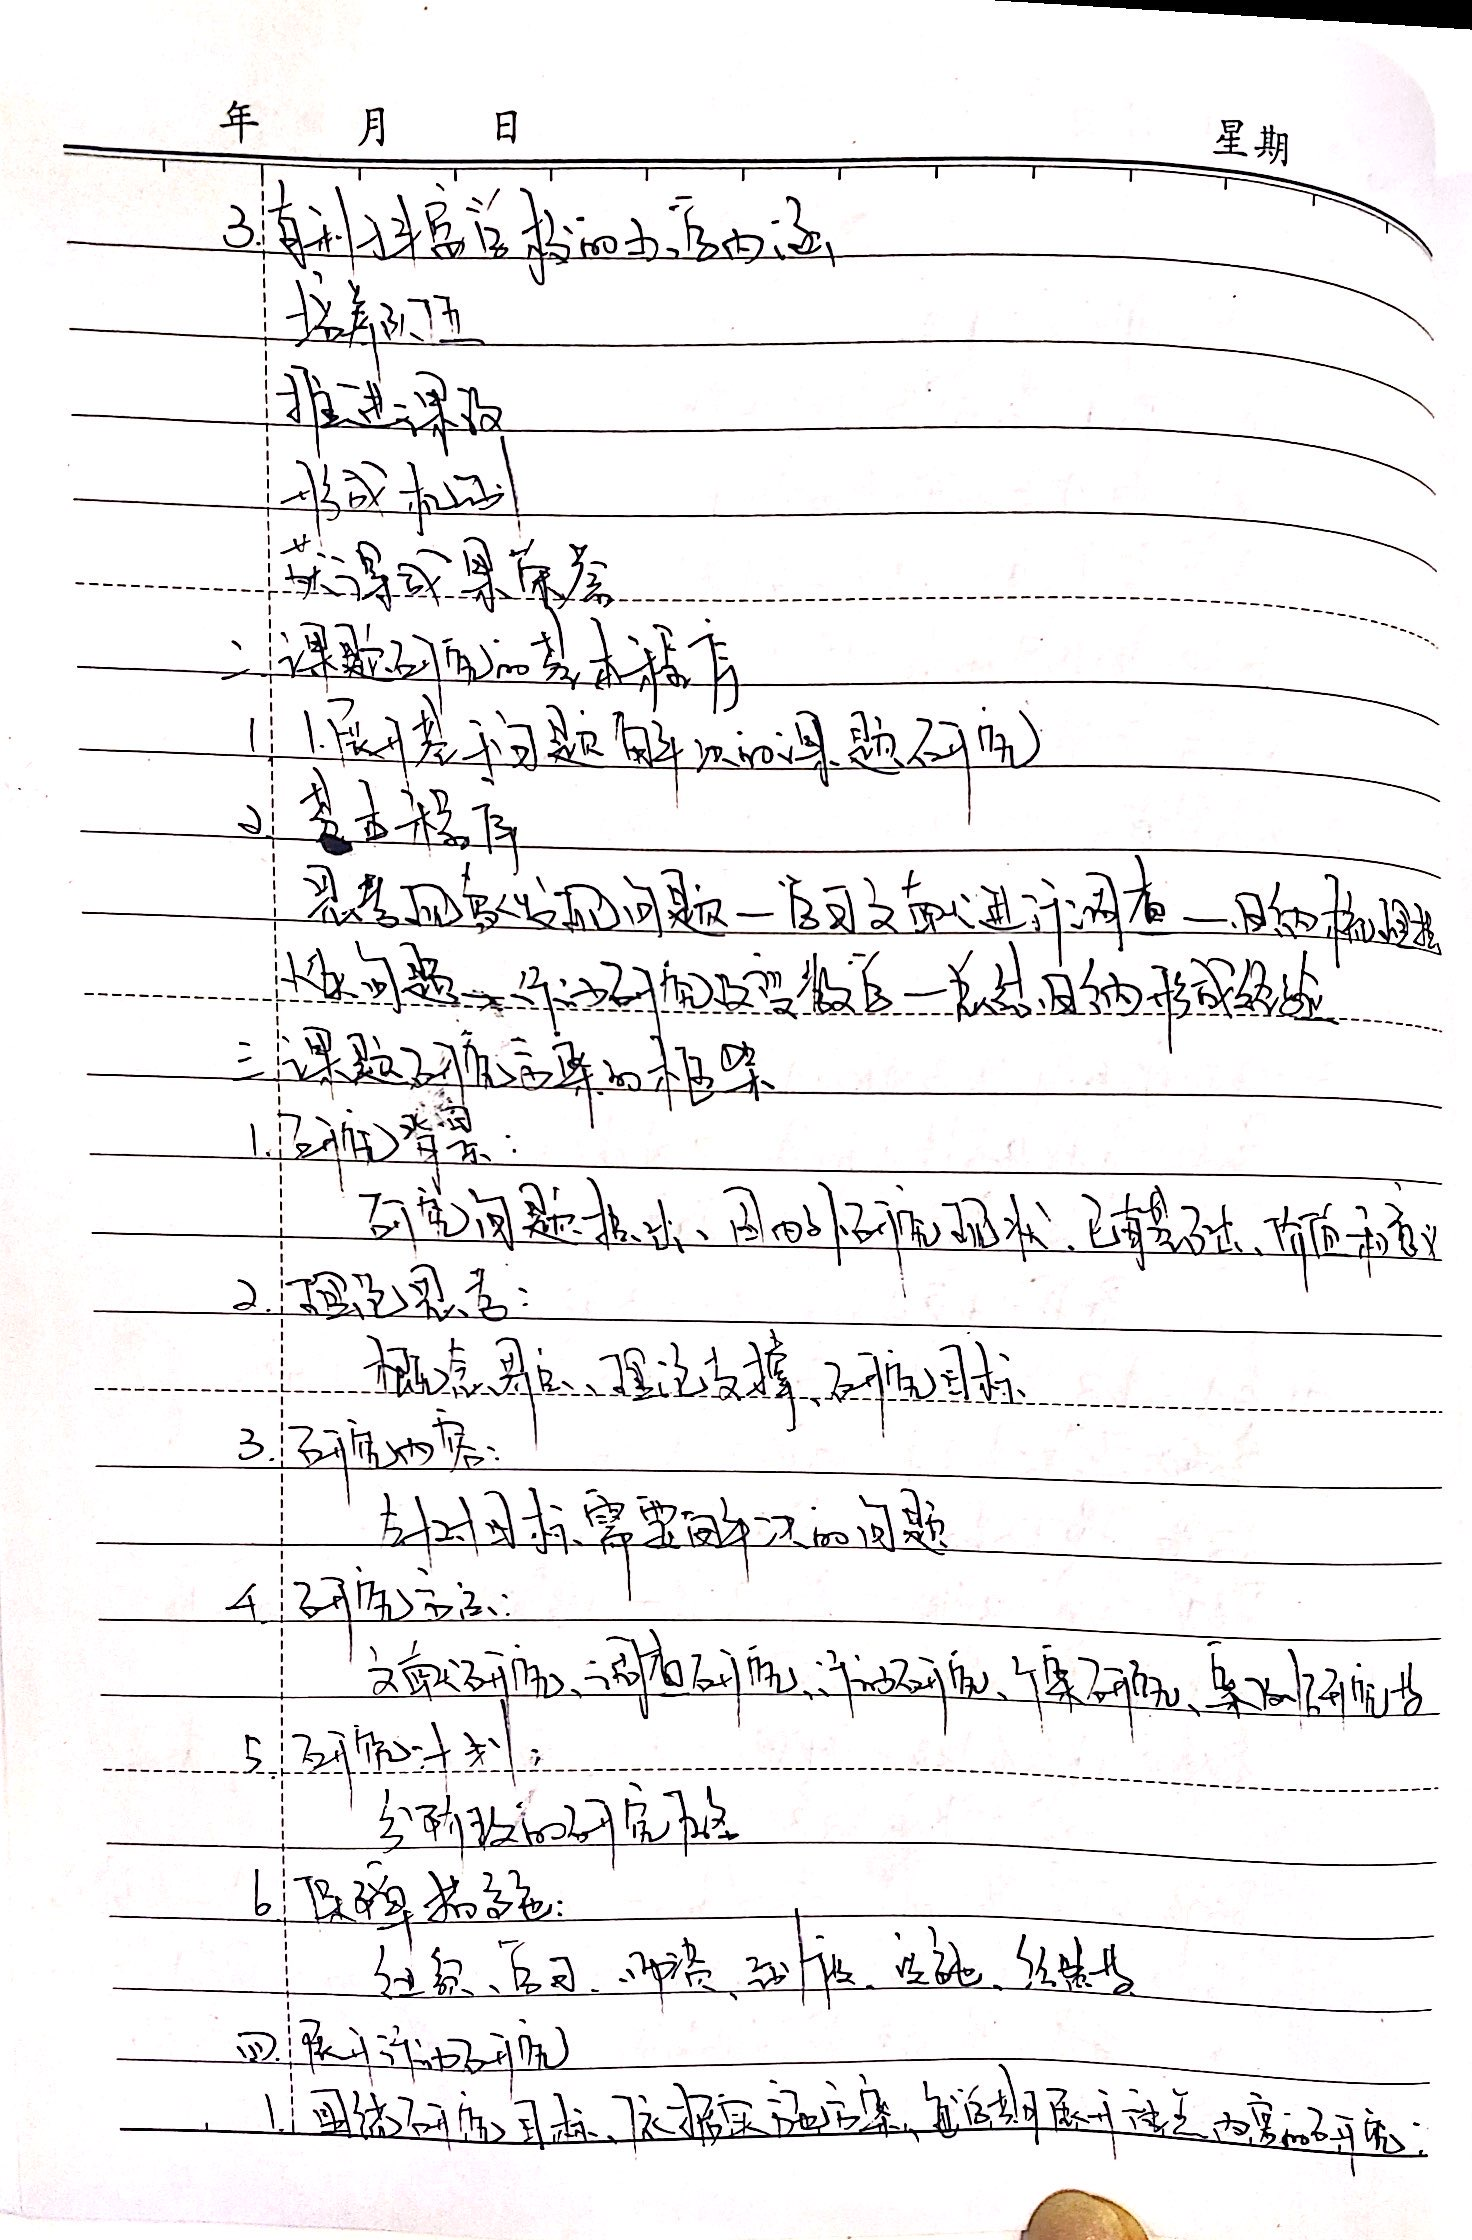 年 月 日 星期
3. 有利丰富学校的办学内涵
培养队伍
推进课改
形成机制
获得成果荣誉
二 课题研究的基本程序
1 1.展开基于问题解决的课题研究
2. 基本程序
思考现象发现问题—学习文献进行调查—归纳梳理提
炼问题—行动研究改变教学—总结归纳形成经验
三 课题研究方案的框架
1. 研究背景:
研究问题提出、国内外研究现状、已有基础、价值和意义
2. 理论思考:
概念界定、理论支撑、研究目标
3. 研究内容:
针对目标需要解决的问题
4 研究方法:
文献研究、调查研究、行动研究、个案研究、案例研究等
5 研究计划:
分阶段的研究
6 保障措施:
组织、学习、师资、制度、设施、经费等
四. 展开行动研究
1. 围绕研究目标、依据实施方案、每学期展开 内容的研究;